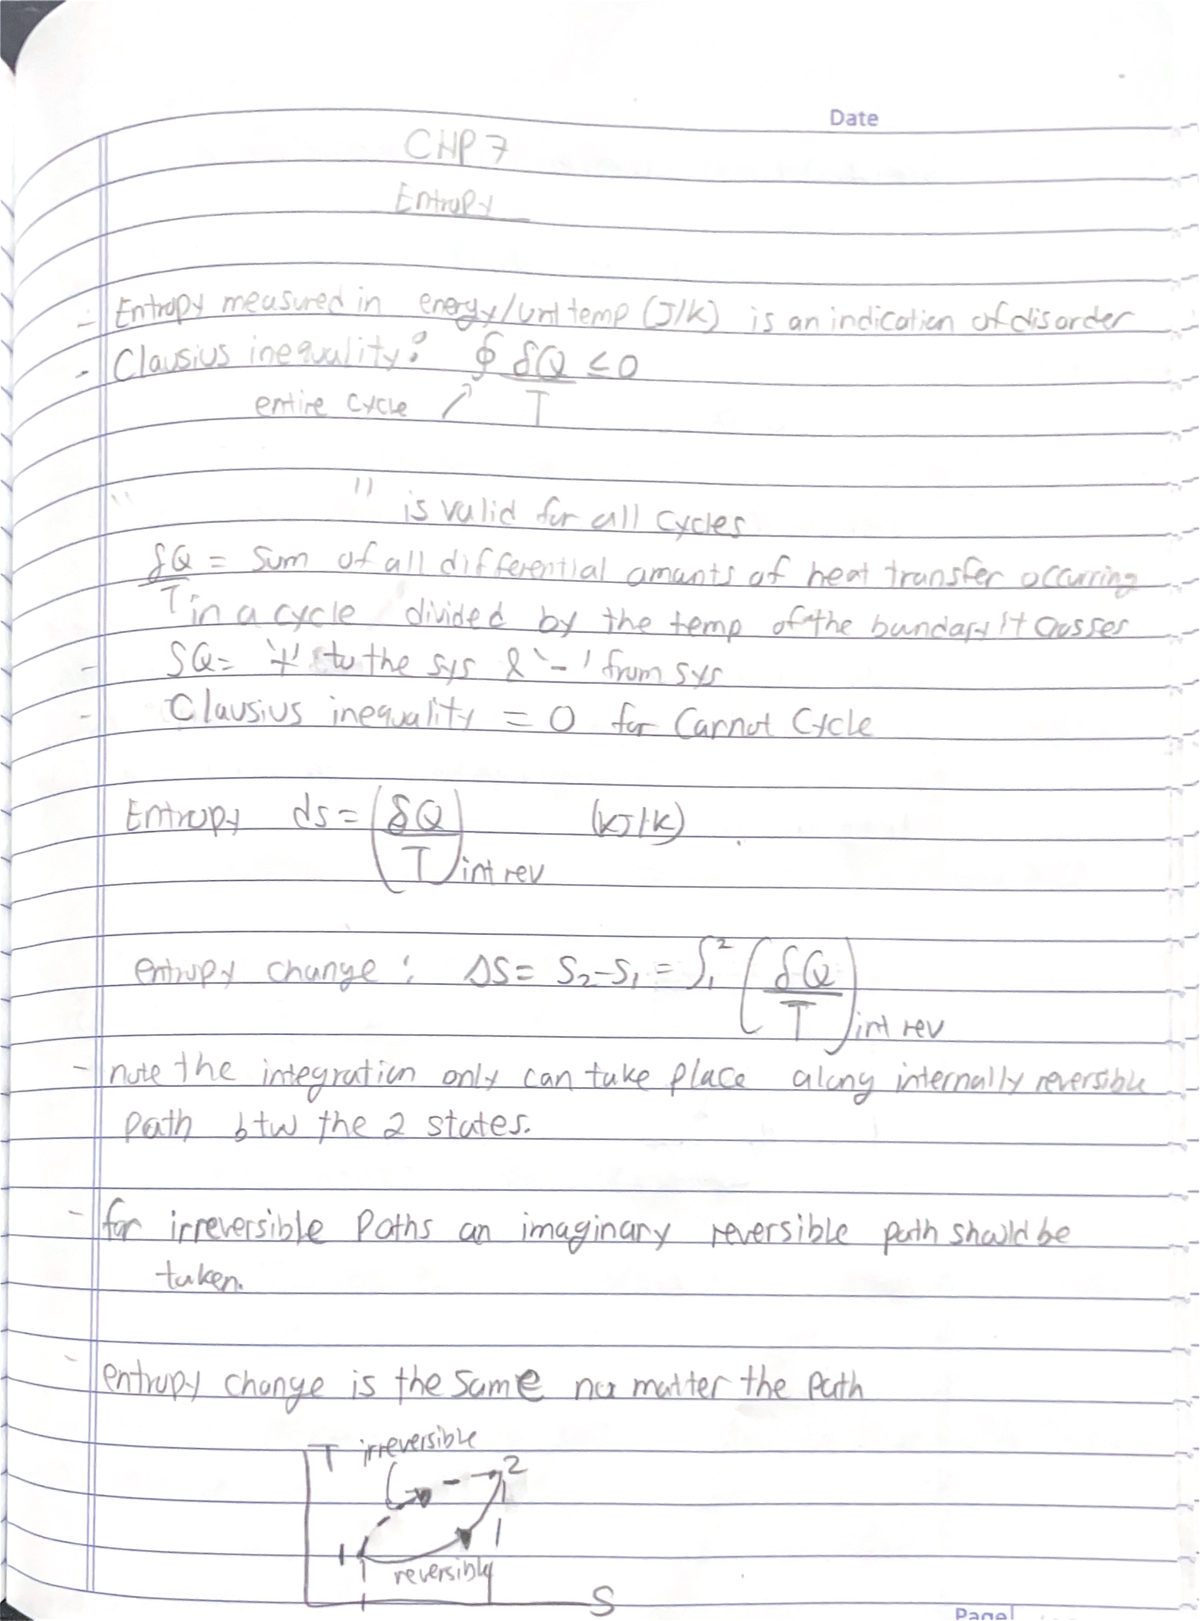 Date
CHP 7
Entropy
- Entropy measured in energy/unit temp (J/K) is an indication of disorder
- Clausius inequality: ∮ δQ/T ≤ 0
entire cycle ↗
" " is valid for all cycles
δQ/T = Sum of all differential amounts of heat transfer occurring
in a cycle divided by the temp of the bundary it crosses
- δQ = '+' to the sys & '-' from sys
- Clausius inequality = 0 for Carnot Cycle
Entropy ds = (δQ/T) int rev (kJ/K)
entropy change: ΔS = S₂-S₁ = ∫₁² (δQ/T) int rev
- note the integration only can take place along internally reversible
path btw the 2 states.
- for irreversible Paths an imaginary reversible path should be
taken.
- entropy change is the same no matter the path
T irreversible
2
1
reversibly
S
Page